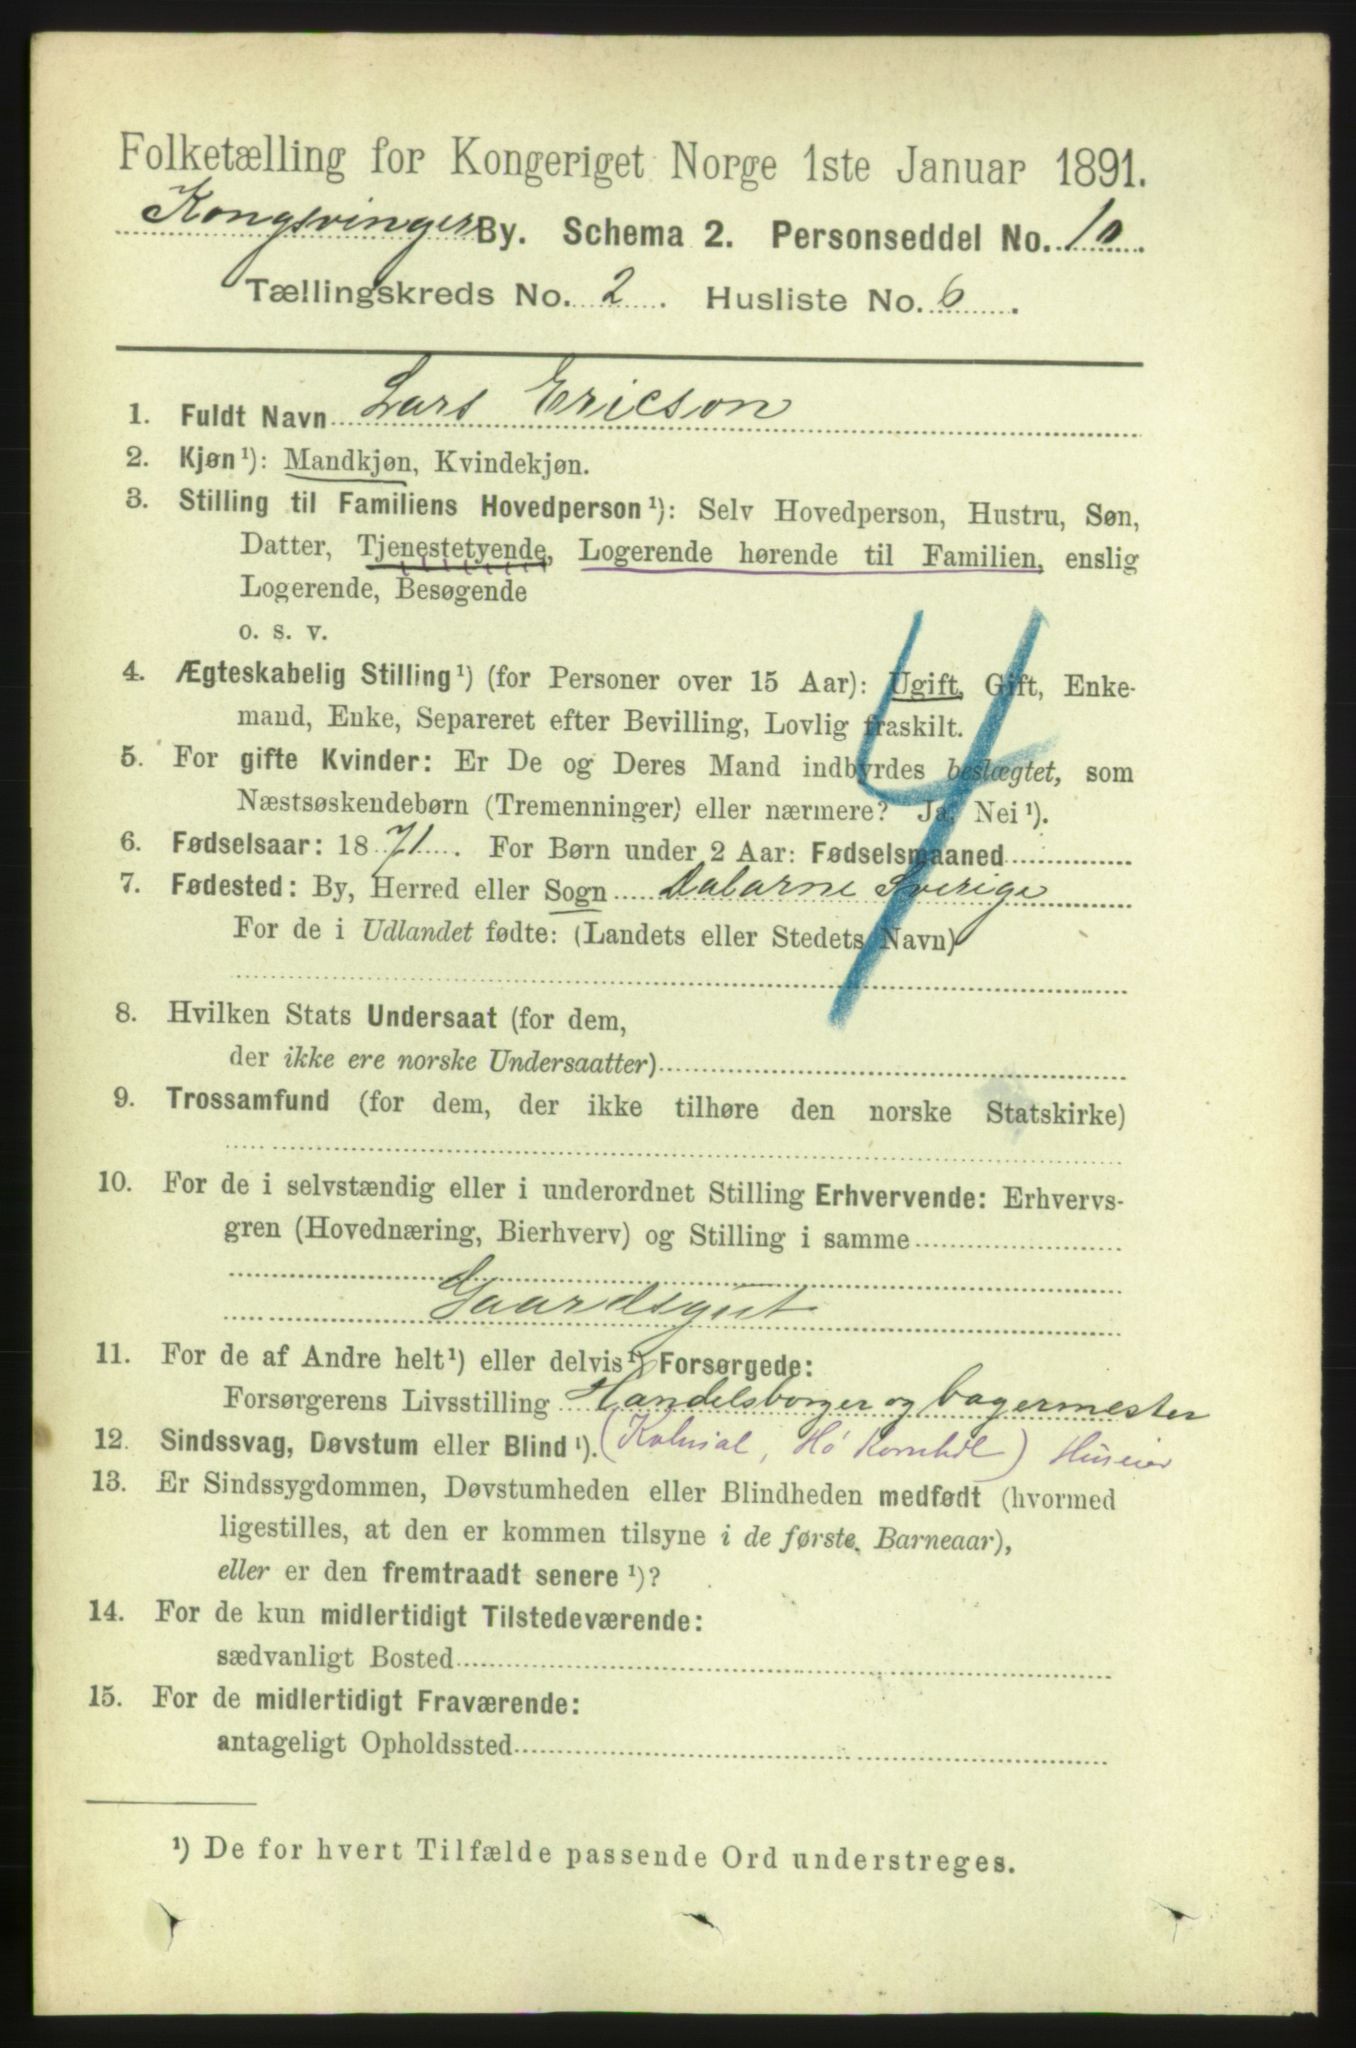 Folketælling for Kongeriget Norge 1ste Januar 1891.
Kongsvinger By. Schema 2. Personseddel No. 10.
Tællingskreds No. 2. Husliste No. 6.
1. Fuldt Navn Lars Ericson
2. Kjøn¹): Mandkjøn, Kvindekjøn.
3. Stilling til Familiens Hovedperson¹): Selv Hovedperson, Hustru, Søn,
Datter, Tjenestetyende, Logerende hørende til Familien, enslig
Logerende, Besøgende
o. s. v.
4. Ægteskabelig Stilling¹) (for Personer over 15 Aar): Ugift, Gift, Enke-
mand, Enke, Separeret efter Bevilling, Lovlig fraskilt.
5. For gifte Kvinder: Er De og Deres Mand indbyrdes beslægtet, som
Næstsøskendebørn (Tremenninger) eller nærmere? Ja, Nei¹).
6. Fødselsaar: 1871. For Børn under 2 Aar: Fødselsmaaned
7. Fødested: By, Herred eller Sogn Dalarne Sverige
For de i Udlandet fødte: (Landets eller Stedets Navn)
4
8. Hvilken Stats Undersaat (for dem,
der ikke ere norske Undersaatter)
9. Trossamfund (for dem, der ikke tilhøre den norske Statskirke)
10. For de i selvstændig eller i underordnet Stilling Erhvervende: Erhvervs-
gren (Hovednæring, Bierhverv) og Stilling i samme
Gaardsgut
11. For de af Andre helt¹) eller delvis¹) Forsørgede:
Forsørgerens Livsstilling Handelsborger og bagermester
12. Sindssvag, Døvstum eller Blind¹). (Kolonial, Huseier
13. Er Sindssygdommen, Døvstumheden eller Blindheden medfødt (hvormed
ligestilles, at den er kommen tilsyne i de første Barneaar),
eller er den fremtraadt senere¹)?
14. For de kun midlertidigt Tilstedeværende:
sædvanligt Bosted
15. For de midlertidigt Fraværende:
antageligt Opholdssted
¹) De for hvert Tilfælde passende Ord understreges.